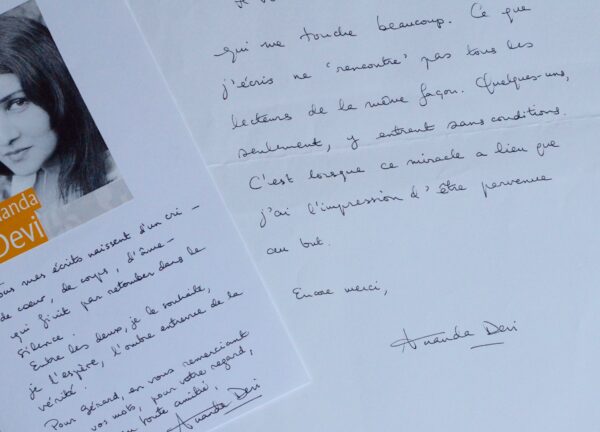 anda
Devi
ous mes écrits naissent d'un cri –
de cœur, de corps, d'âme –
qui finit par retomber dans le
silence.
Entre les deux, je le souhaite,
je l'espère, l'ombre entrevue de la
vérité.
Pour Gérard, en vous remerciant
vos mots, pour votre regard,
toute amitié,
Ananda Devi
qui me touche beaucoup. Ce que
j'écris ne 'rencontre' pas tous les
lecteurs de la même façon. Quelques-uns,
seulement, y entrent sans conditions.
C'est lorsque ce miracle a lieu que
j'ai l'impression d'être parvenue
au but.
Encore merci,
Ananda Devi